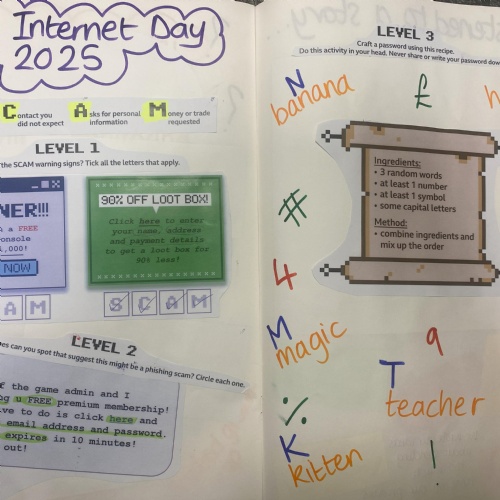 Internet Day
2025
C ontact you did not expect
A sks for personal information
M oney or trade requested
LEVEL 1
the SCAM warning signs? Tick all the letters that apply.
NER!!!
a FREE
onsole
,000!
NOW
A M
90% OFF LOOT BOX!
Click here to enter
your name, address
and payment details
to get a loot box for
90% less!
S C A M
LEVEL 2
can you spot that suggest this might be a phishing scam? Circle each one.
the game admin and I
u FREE premium membership!
to do is click here and
email address and password.
expires in 10 minutes!
out!
LEVEL 3
Craft a password using this recipe.
Do this activity in your head. Never share or write your password dow
N
banana
£
h
Ingredients:
• 3 random words
• at least 1 number
• at least 1 symbol
• some capital letters
Method:
• combine ingredients and
mix up the order
#
4
M
magic
9
T
teacher
%
K
kitten
!